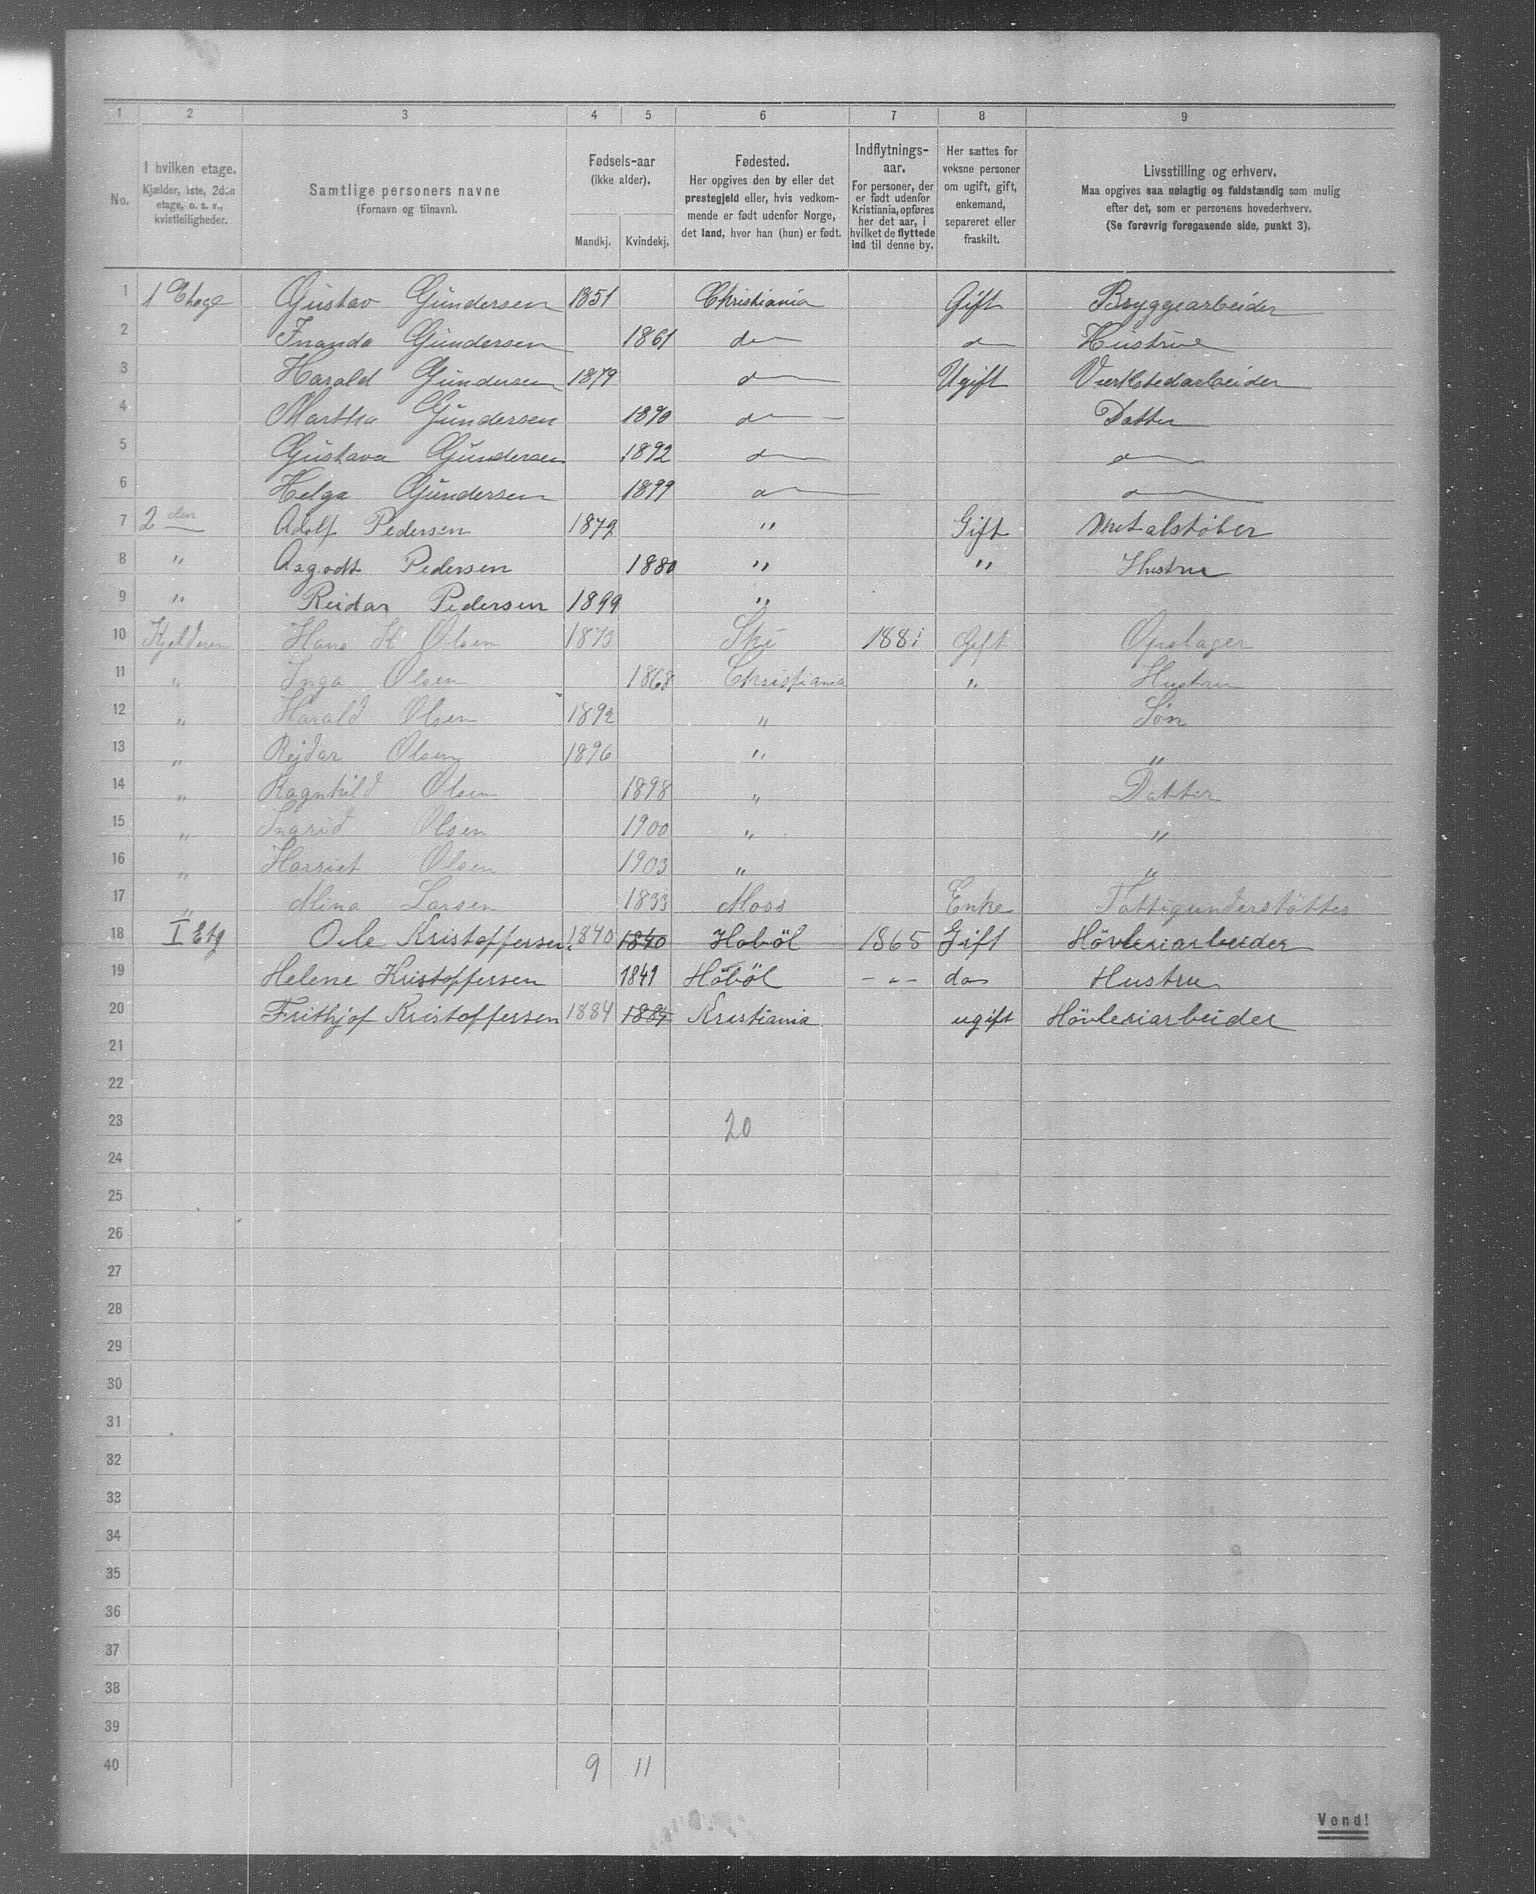 1 2 3 4 5 6 7 8 9
No. | I hvilken etage. Kjælder, 1ste, 2den etage, o. s. v., kvistleiligheder. | Samtlige personers navne (Fornavn og tilnavn). | Fødsels-aar (ikke alder). Mandkj. | Kvindekj. | Fødested. Her opgives den by eller det prestegjeld eller, hvis vedkommende er født udenfor Norge, det land, hvor han (hun) er født. | Indflytnings-aar. For personer, der er født udenfor Kristiania, opføres her det aar, i hvilket de flyttede ind til denne by. | Her sættes for voksne personer om ugift, gift, enkemand, separeret eller fraskilt. | Livsstilling og erhverv. Maa opgives saa nøiagtig og fuldstændig som mulig efter det, som er personens hovederhverv. (Se forøvrig foregaaende side, punkt 3).
1 1 Etage Gustav Gundersen 1851 Christiania Gift Bryggearbeider
2 Inanda Gundersen 1861 do do Hustrue
3 Harald Gundersen 1879 do Ugift Værkstedarbeider
4 Martha Gundersen 1890 do Datter
5 Gustava Gundersen 1892 do do
6 Helga Gundersen 1899 do do
7 2den Adolf Pedersen 1879 " Gift Metalstøber
8 " Asgodt Pedersen 1880 " " Hustru
9 " Reidar Pedersen 1899 "
10 Kjelderen Hans K Olsen 1873 Ski 1881 Gift Opslager
11 " Inga Olsen 1868 Christiania " Hustru
12 " Harald Olsen 1892 " Søn
13 " Rejdar Olsen 1896 " "
14 " Ragnhild Olsen 1898 " Datter
15 " Ingrid Olsen 1900 " "
16 " Harriet Olsen 1903 " "
17 " Mina Larsen 1833 Moss Enke Fattigunderstøttes
18 I Etg Ole Kristoffersen 1840 1840 Hoböl 1865 Gift Hövleriarbeider
19 Helene Kristoffersen 1841 Hoböl - " - do Hustru
20 Frithjof Kristoffersen 1884 1884 Kristiania ugift Hövleriarbeider
21
22
23 20
24
25
26
27
28
29
30
31
32
33
34
35
36
37
38
39
40 9 11
Vend!